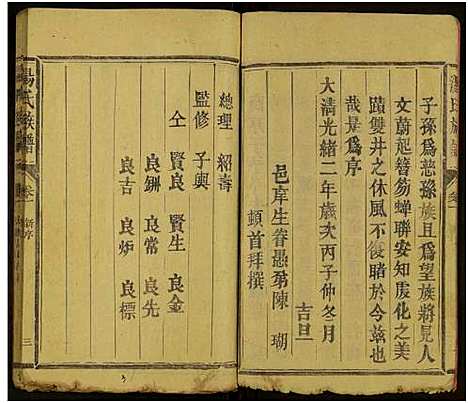 子孫爲慈孫族且爲望族將見人
文蔚起簪笏蟬聯安知虞化之美
蹟雙井之休風不復睹於今茲也
哉是爲序
大清光緒二年歲次丙子仲冬月
吉旦
邑庠生眷愚弟陳瑚
頓首拜撰
總理 紹壽
監修 子興
仝 賢良 賢生 良金
良鉶 良常 良先
良吉 良炉 良標
湯氏族譜 卷一 新序
三